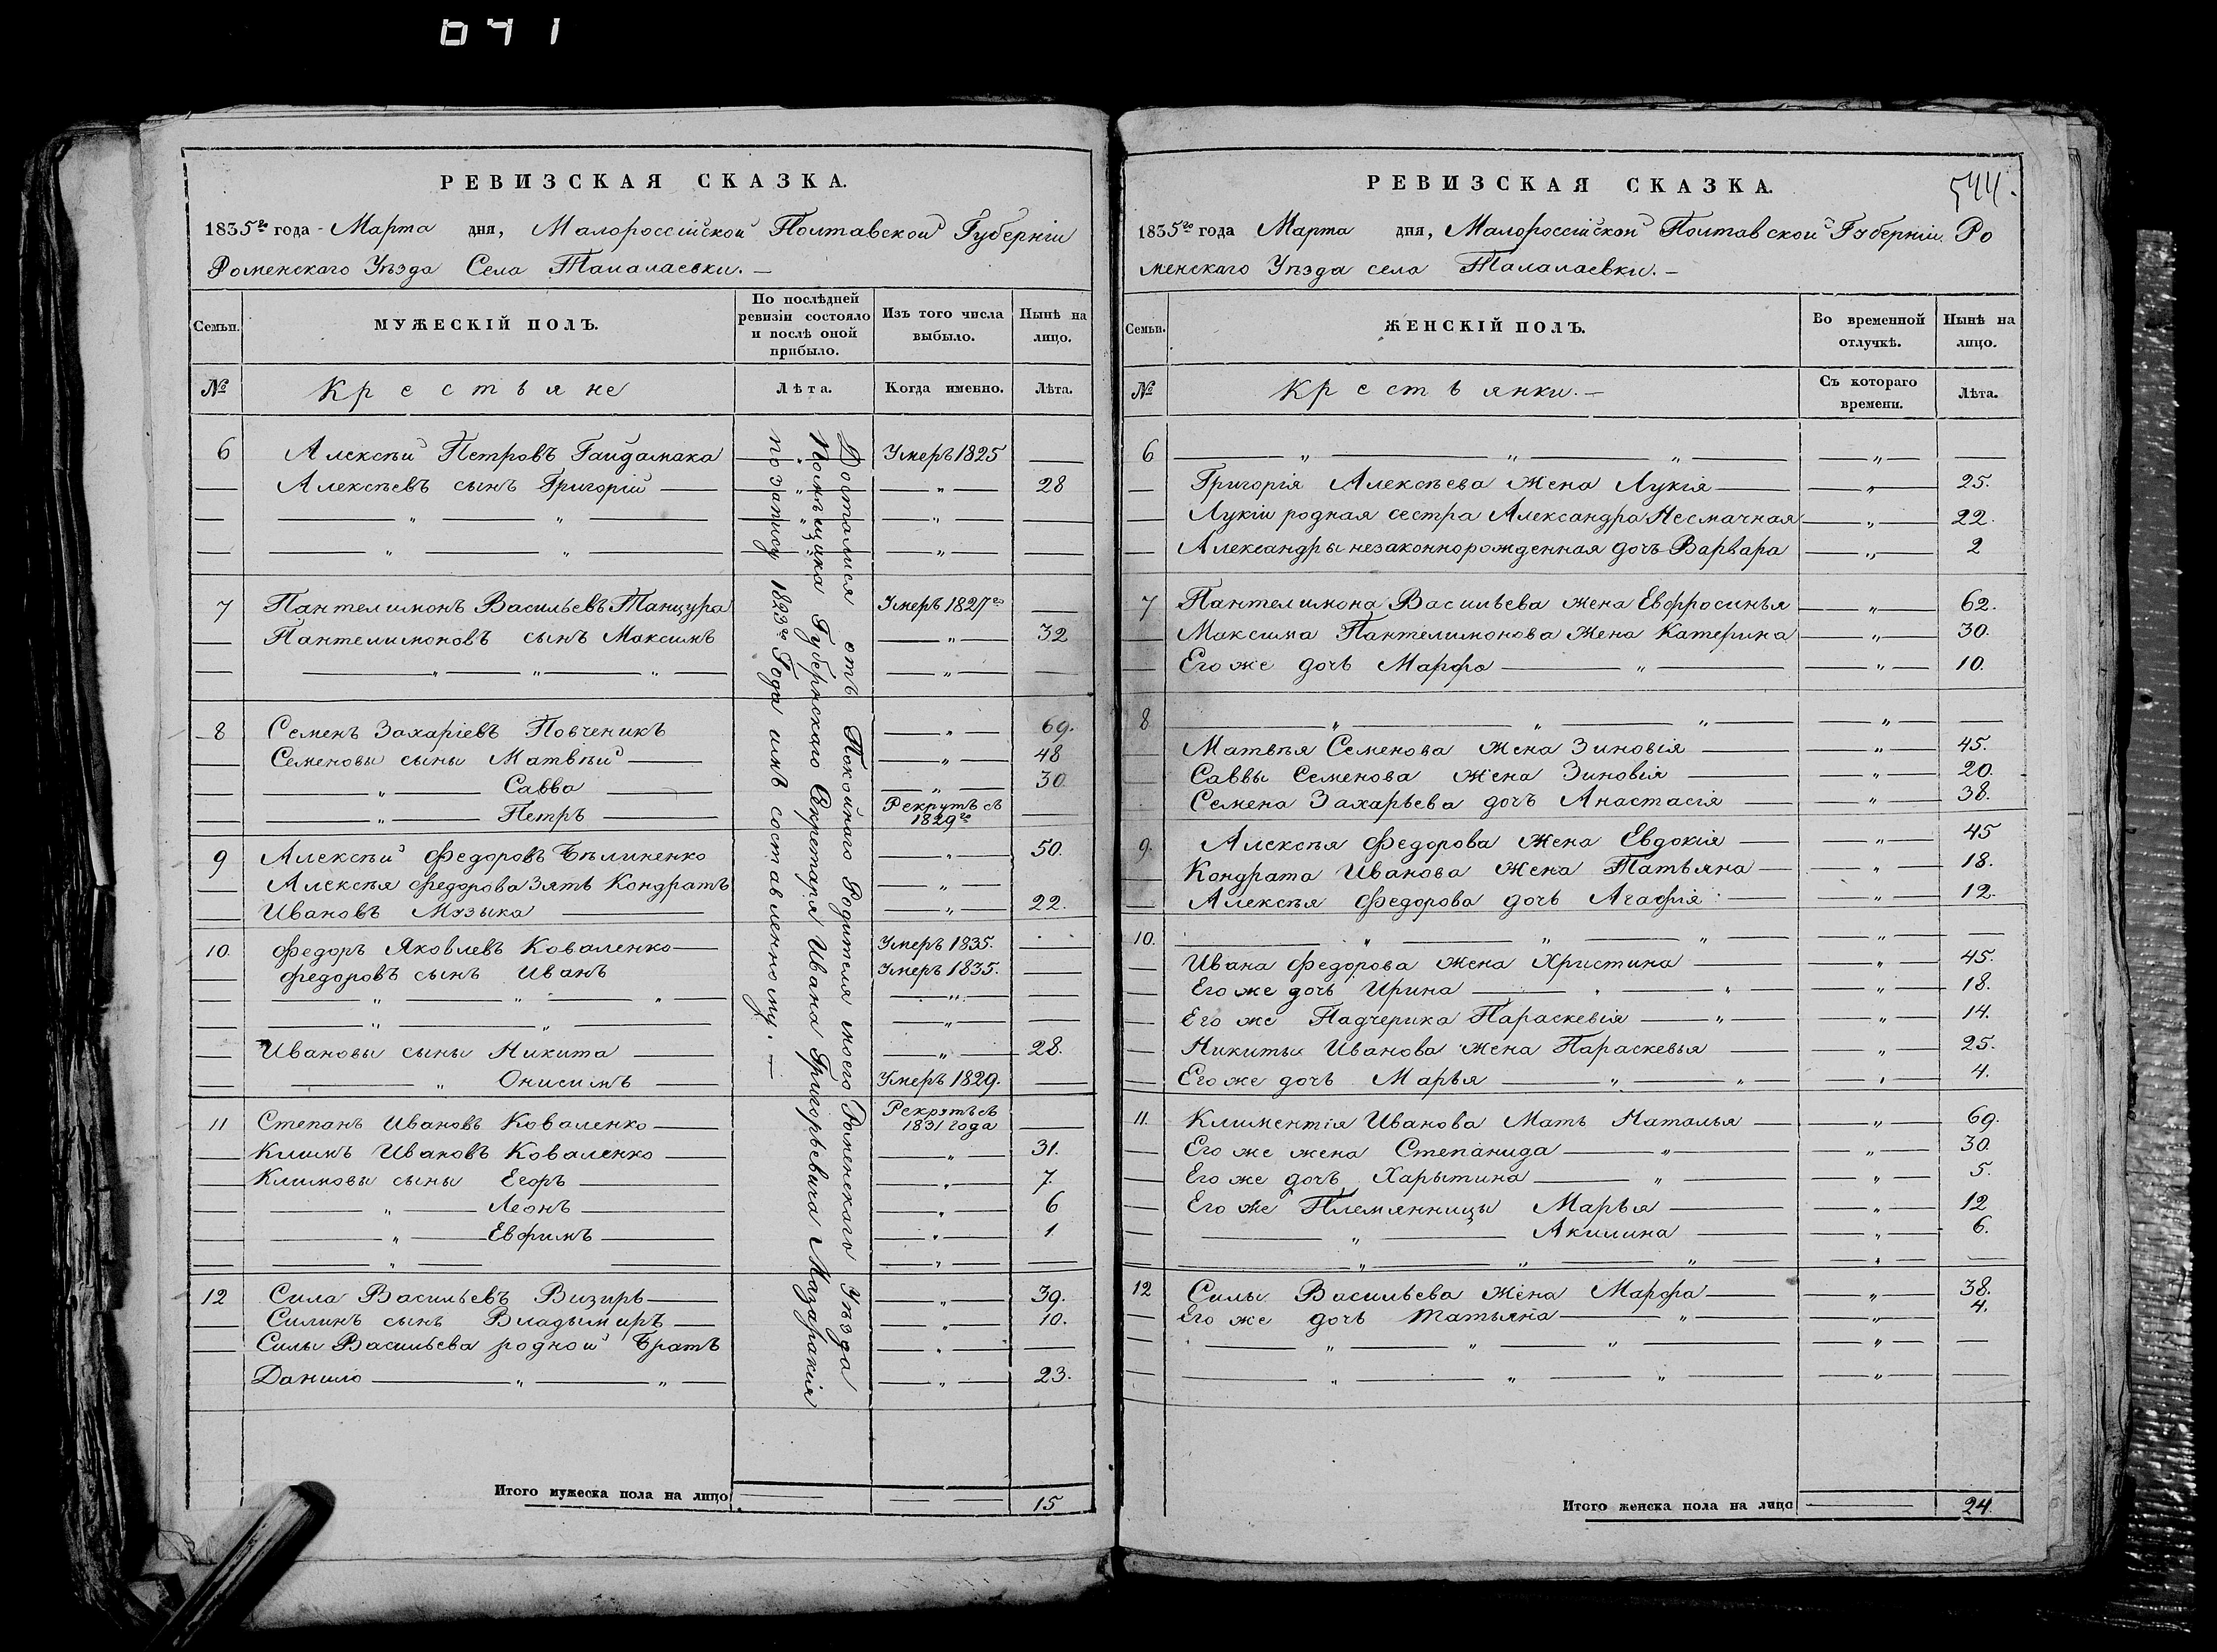 041
РЕВИЗСКАЯ СКАЗКА.
1835го года Марта дня, Малороссійской Полтавской Губерніи
Роменскаго Уѣзда Села Талалаевки. —
Семьи. МУЖЕСКІЙ ПОЛЪ. По послѣдней ревизіи состояло и послѣ оной прибыло. Изъ того числа выбыло. Нынѣ на лицо.
№ Крестьяне Лѣта. Когда именно. Лѣта.
6 Алексѣй Петровъ Гайдамака Умеръ 1825
Алексѣевъ сынъ Григорій 28
7 Пантелимонъ Васильевъ Танцура Умеръ 1827го
Пантелимоновъ сынъ Максимъ 32
8 Семенъ Захаріевъ Повченикъ 69.
Семеновы сыны Матвѣй 48
Савва 30
Петръ Рекрутъ съ 1829го
9 Алексѣй Федоровъ Бѣлиненко 50.
Алексѣя Федорова Зять Кондратъ
Ивановъ Музыка 22.
10. Федоръ Яковлевъ Коваленко Умеръ 1835.
Федоровъ сынъ Иванъ Умеръ 1835.
Ивановы сыны Никита 28.
Онисимъ Умеръ 1829.
11 Степанъ Ивановъ Коваленко Рекрутъ съ 1831 года
Климъ Ивановъ Коваленко 31.
Климовы сыны Егоръ 7.
Леонъ 6
Евфимъ 1
12 Сила Васильевъ Визирь 39.
Силинъ сынъ Владымиръ 10.
Силы Васильева родной Братъ
Данило 23.
Достались отъ Покойнаго Родителя моего Роменскаго Уѣзда
Помѣщика Губернскаго Секретаря Ивана Григорьевича Мадаракія
по запису 1823го Года имъ составленному. —
Итого мужеска пола на лицо 15
РЕВИЗСКАЯ СКАЗКА. 544.
1835го года Марта дня, Малороссійской Полтавской Губерніи Ро
менскаго Уѣзда села Талалаевки. —
Семьи. ЖЕНСКІЙ ПОЛЪ. Во временной отлучкѣ. Нынѣ на лицо.
№ Крестьянки. — Съ котораго времени. Лѣта.
6
Григорія Алексѣева Жена Лукія 25.
Лукіи родная сестра Александра Несмачная 22.
Александры незаконнорожденная дочь Варвара 2
7 Пантелимона Васильева жена Евфросинья 62.
Максима Пантелимонова Жена Катерина 30.
Его же дочь Марфа 10.
8
Матвѣя Семенова Жена Зиновія 45.
Саввы Семенова Жена Зиновія 20.
Семена Захарьева дочь Анастасія 38.
9. Алексѣя Федорова Жена Евдокія 45
Кондрата Иванова Жена Татьяна 18.
Алексѣя Федорова дочь Агафія 12.
10.
Ивана Федорова жена Христина 45.
Его же дочь Ирина 18.
Его же Падчерика Параскевія 14.
Никиты Иванова жена Параскевья 25.
Его же дочь Марья 4.
11. Климентія Иванова Мать Наталья 69.
Его же жена Степанида 30
Его же дочь Харытина 5.
Его же Племянницы Марья 12
Акилина 6.
12 Силы Васильева жена Марфа 38.
Его же дочь Татьяна 4.
Итого женска пола на лицо 24.